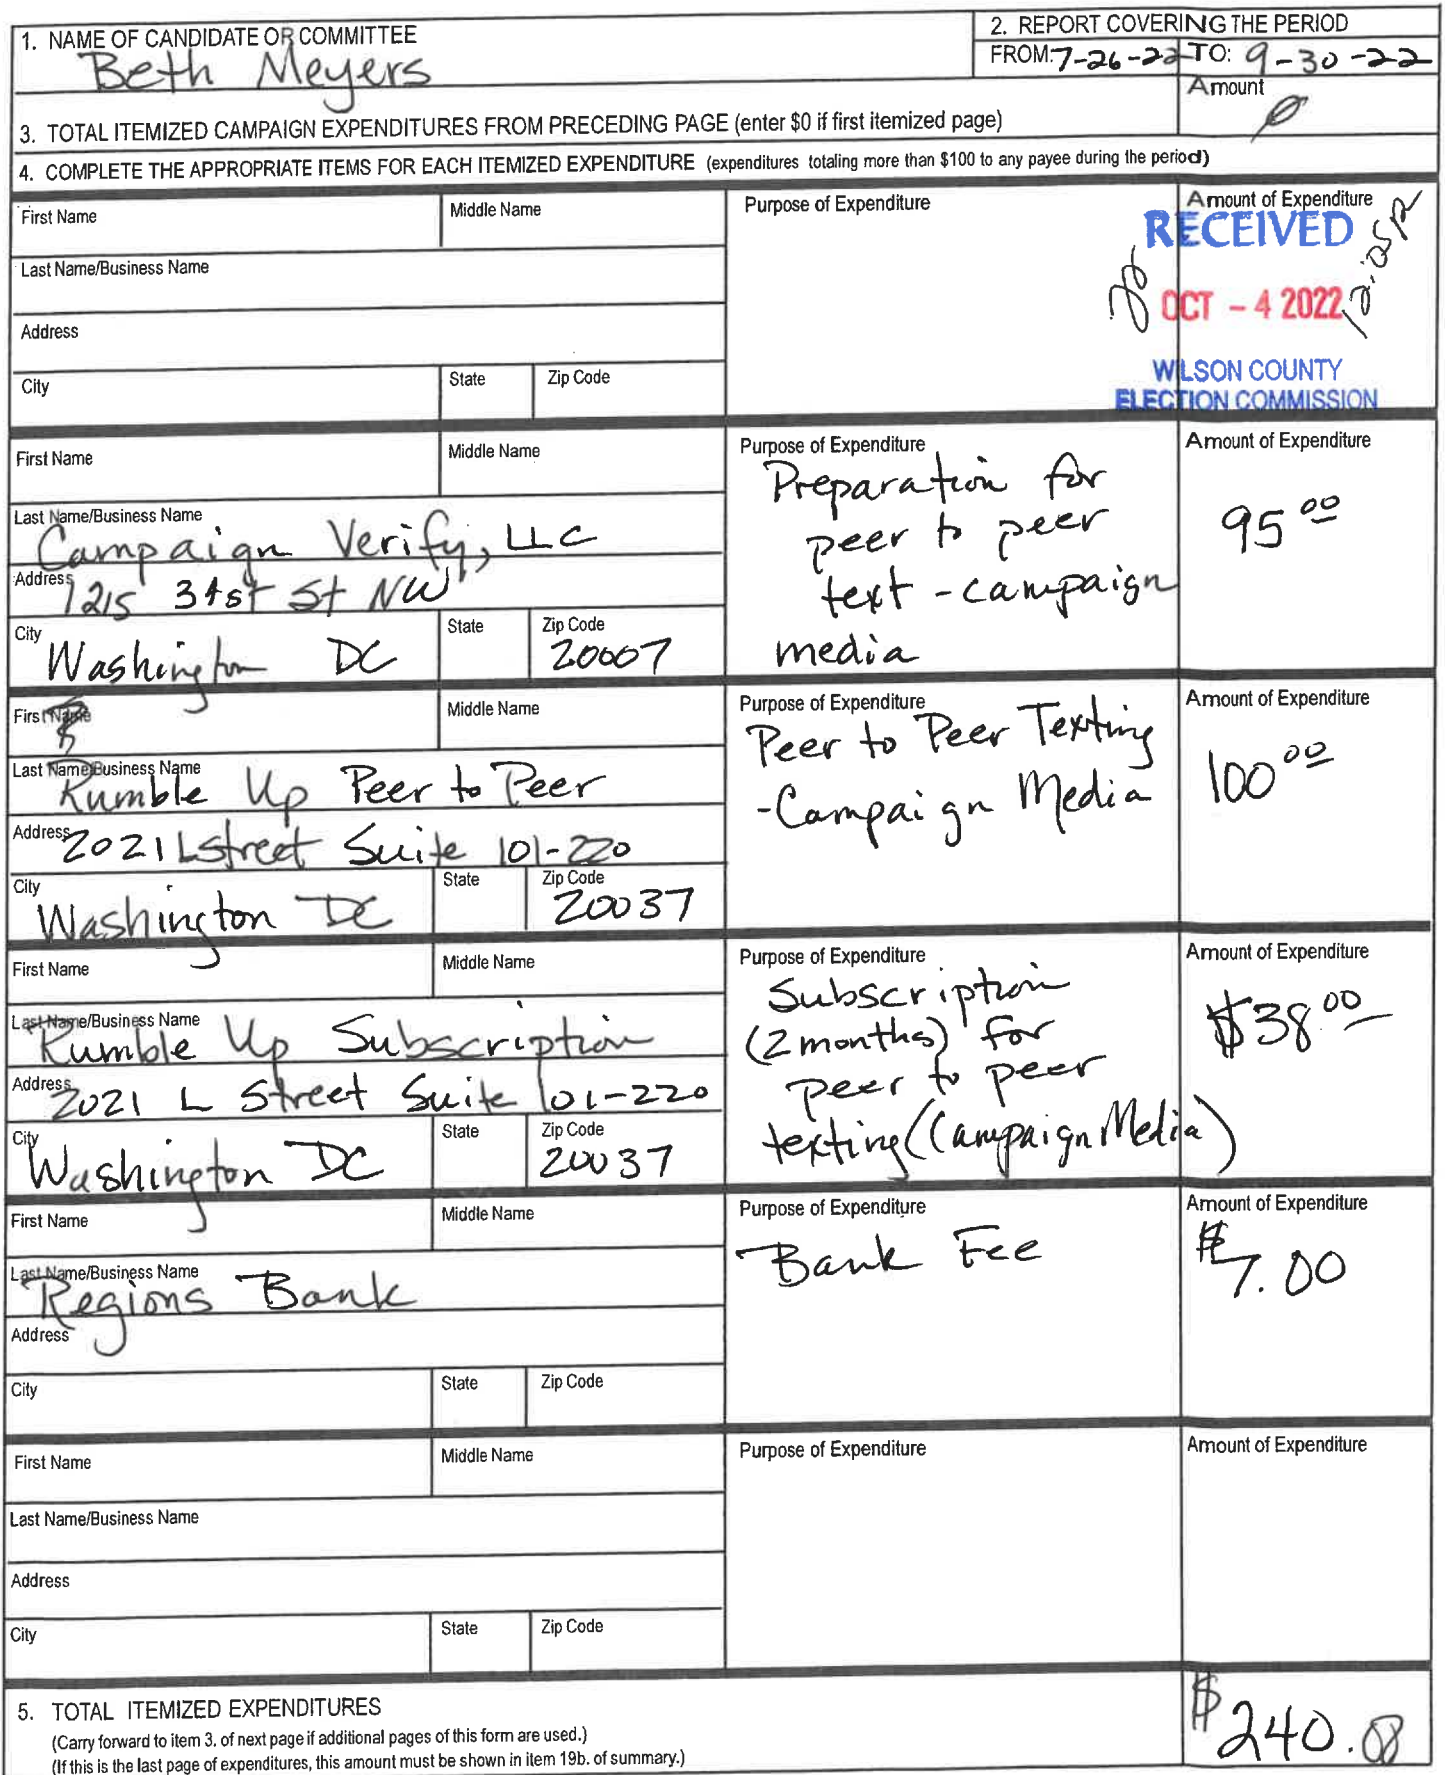 1. NAME OF CANDIDATE OR COMMITTEE
Beth Meyers
2. REPORT COVERING THE PERIOD
FROM: 7-26-22 TO: 9-30-22
3. TOTAL ITEMIZED CAMPAIGN EXPENDITURES FROM PRECEDING PAGE (enter $0 if first itemized page)
Amount
0
4. COMPLETE THE APPROPRIATE ITEMS FOR EACH ITEMIZED EXPENDITURE (expenditures totaling more than $100 to any payee during the period)
First Name
Middle Name
Purpose of Expenditure
Amount of Expenditure
RECEIVED
OCT - 4 2022
WILSON COUNTY
ELECTION COMMISSION
Last Name/Business Name
Address
City
State
Zip Code
First Name
Middle Name
Last Name/Business Name
Campaign Verify, LLC
Address
1215 31st St NW
City
Washington DC
State
Zip Code
20007
Purpose of Expenditure
Preparation for
peer to peer
text - campaign
media
Amount of Expenditure
95 00
First Name
Middle Name
Last Name/Business Name
Rumble Up Peer to Peer
Address
2021 L street Suite 101-220
City
Washington DC
State
Zip Code
20037
Purpose of Expenditure
Peer to Peer Texting
-Campaign Media
Amount of Expenditure
100 00
First Name
Middle Name
Last Name/Business Name
Rumble Up Subscription
Address
2021 L Street Suite 101-220
City
Washington DC
State
Zip Code
20037
Purpose of Expenditure
Subscription
(2 months) for
peer to peer
texting (Campaign Media)
Amount of Expenditure
$38.00
First Name
Middle Name
Last Name/Business Name
Regions Bank
Address
City
State
Zip Code
Purpose of Expenditure
Bank Fee
Amount of Expenditure
$7.00
First Name
Middle Name
Last Name/Business Name
Address
City
State
Zip Code
Purpose of Expenditure
Amount of Expenditure
5. TOTAL ITEMIZED EXPENDITURES
(Carry forward to item 3. of next page if additional pages of this form are used.)
(If this is the last page of expenditures, this amount must be shown in item 19b. of summary.)
$240.00